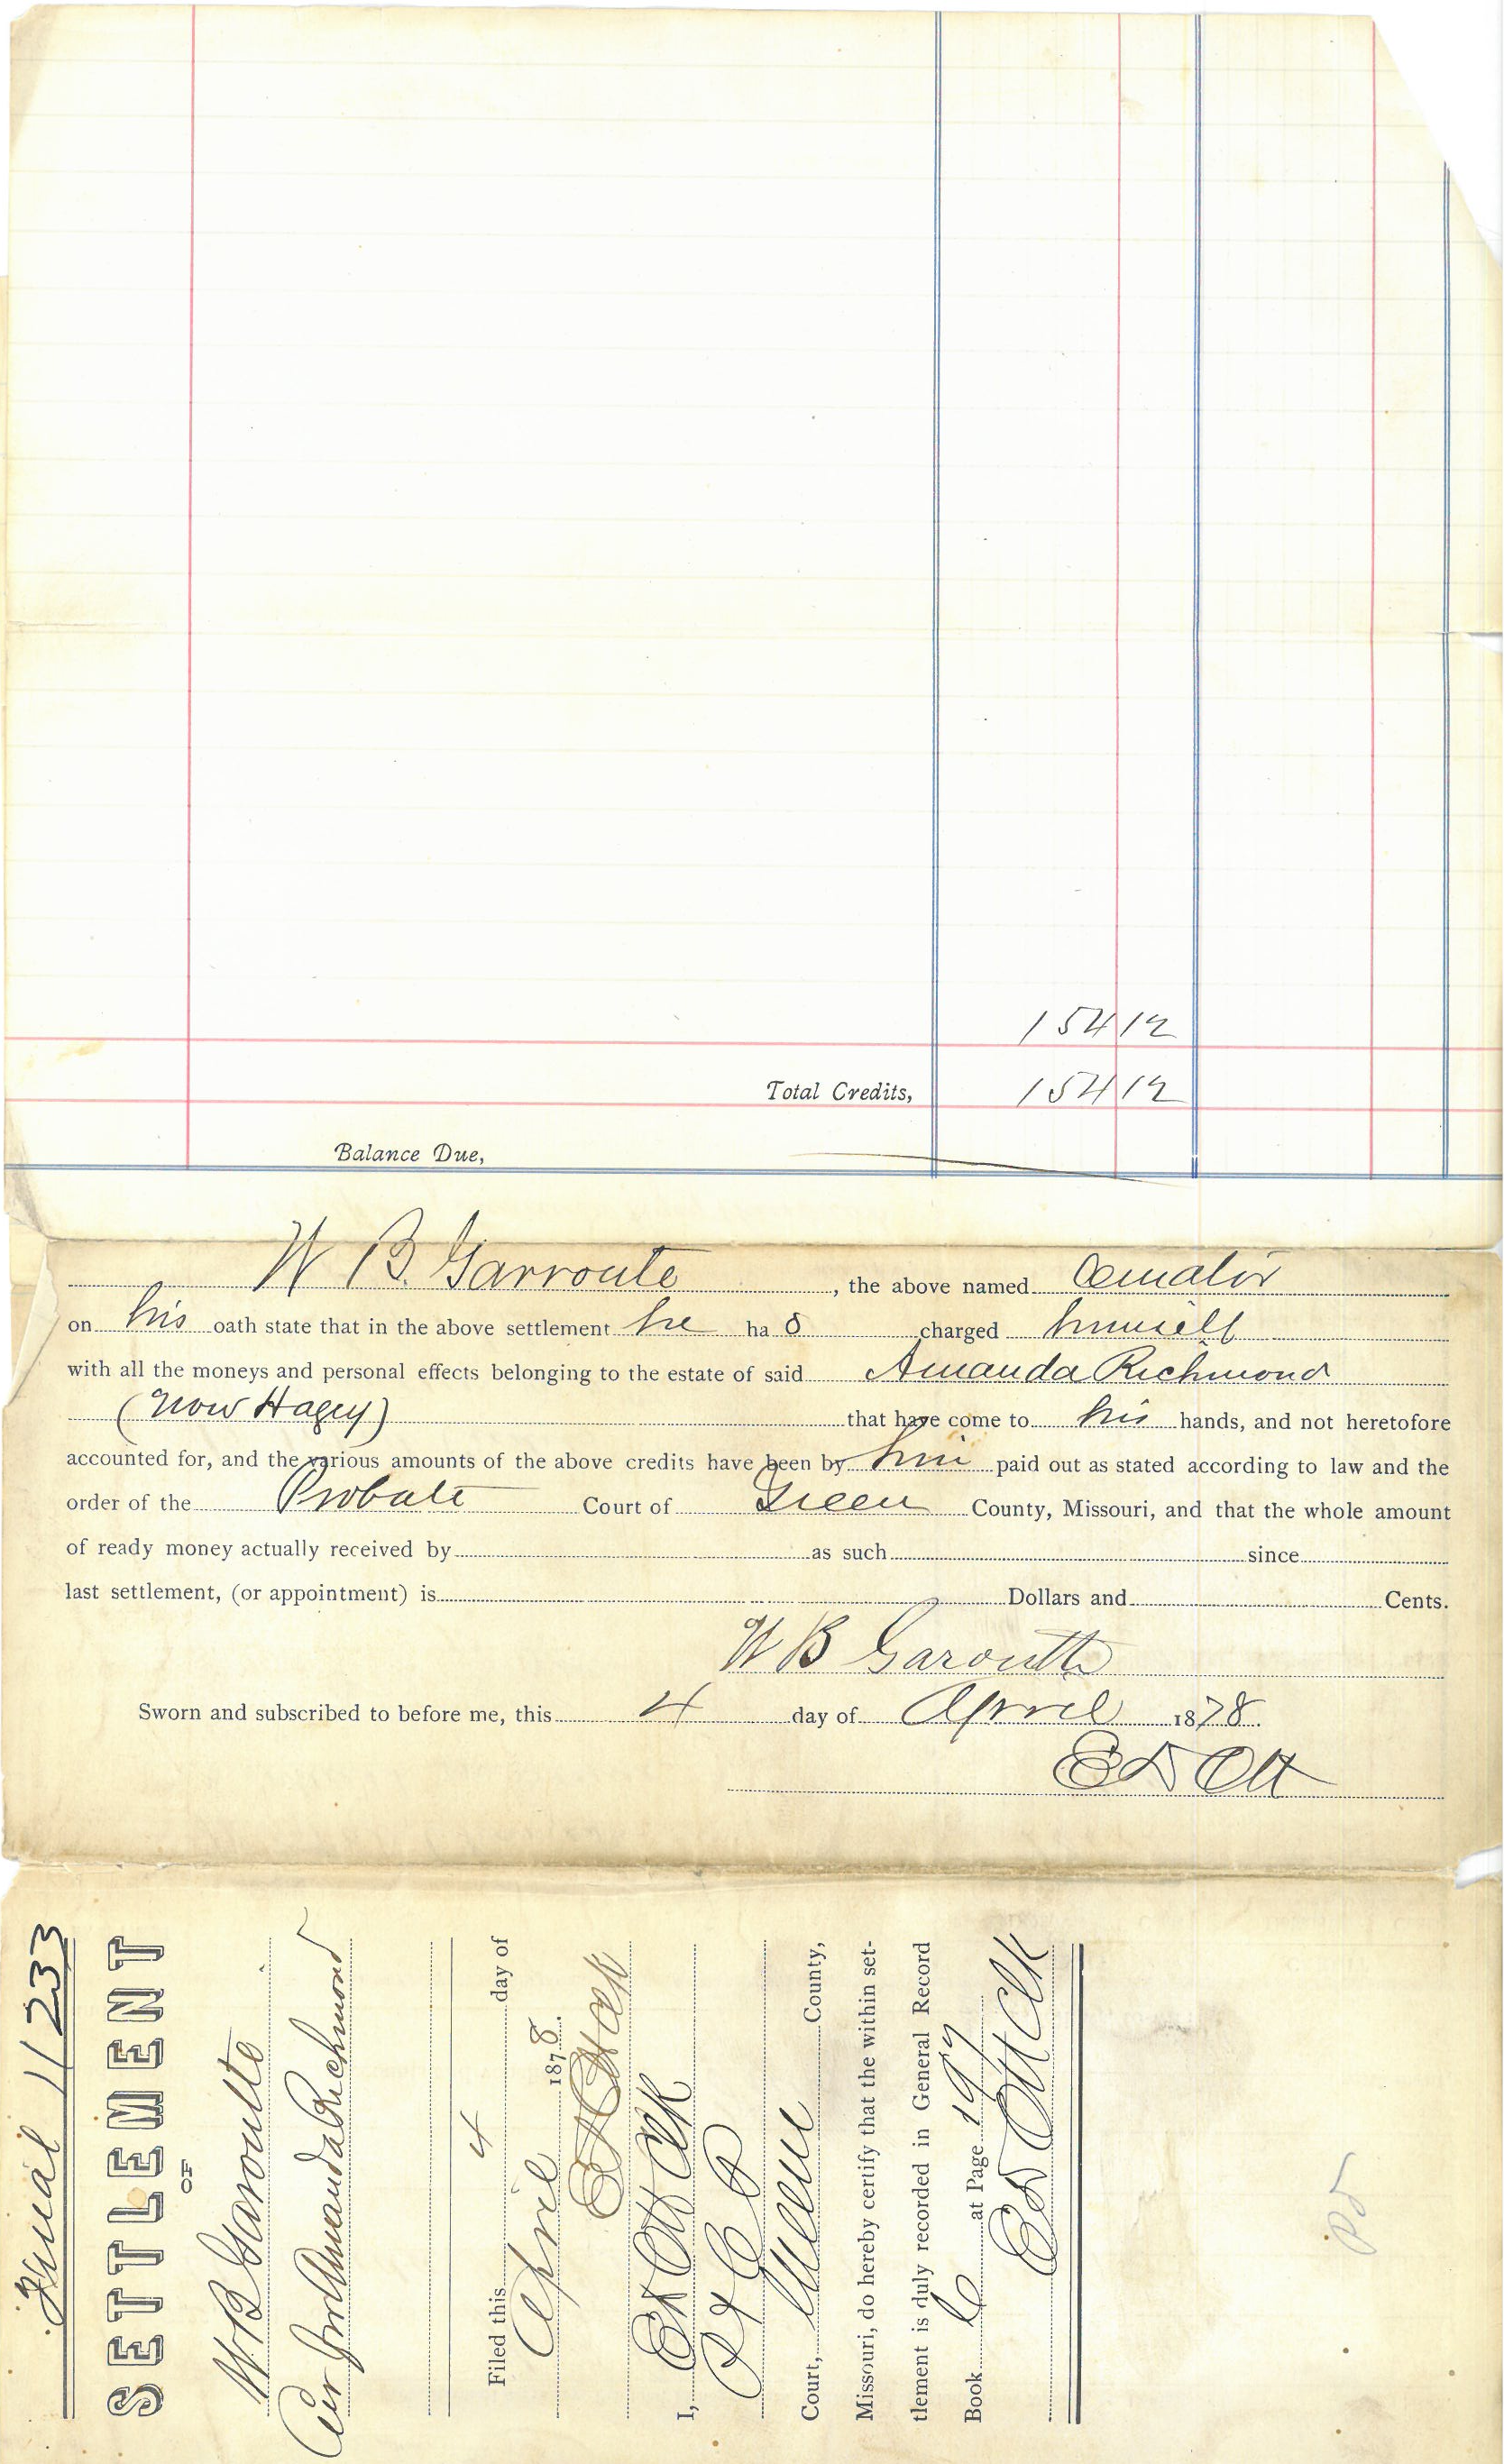 154 12
Total Credits, 154 12
Balance Due,
W B. Garroute, the above named Curator
on his oath state that in the above settlement he ha s charged himself
with all the moneys and personal effects belonging to the estate of said Amanda Richmond
(now Hagey) that have come to his hands, and not heretofore
accounted for, and the various amounts of the above credits have been by him paid out as stated according to law and the
order of the Probate Court of Green County, Missouri, and that the whole amount
of ready money actually received by as such since
last settlement, (or appointment) is Dollars and Cents.
W B Garoutte
Sworn and subscribed to before me, this 4 day of April 1878.
E D Ott
Final 1/233
SETTLEMENT
OF
W. B Garoutte
Cur for Amanda Richmond
Filed this 4 day of
April 1878.
E D Ott Clk
I, E D Ott Clk
Court, Greene County,
Missouri, do hereby certify that the within set-
tlement is duly recorded in General Record
Book C at Page 197
E D Ott Clk